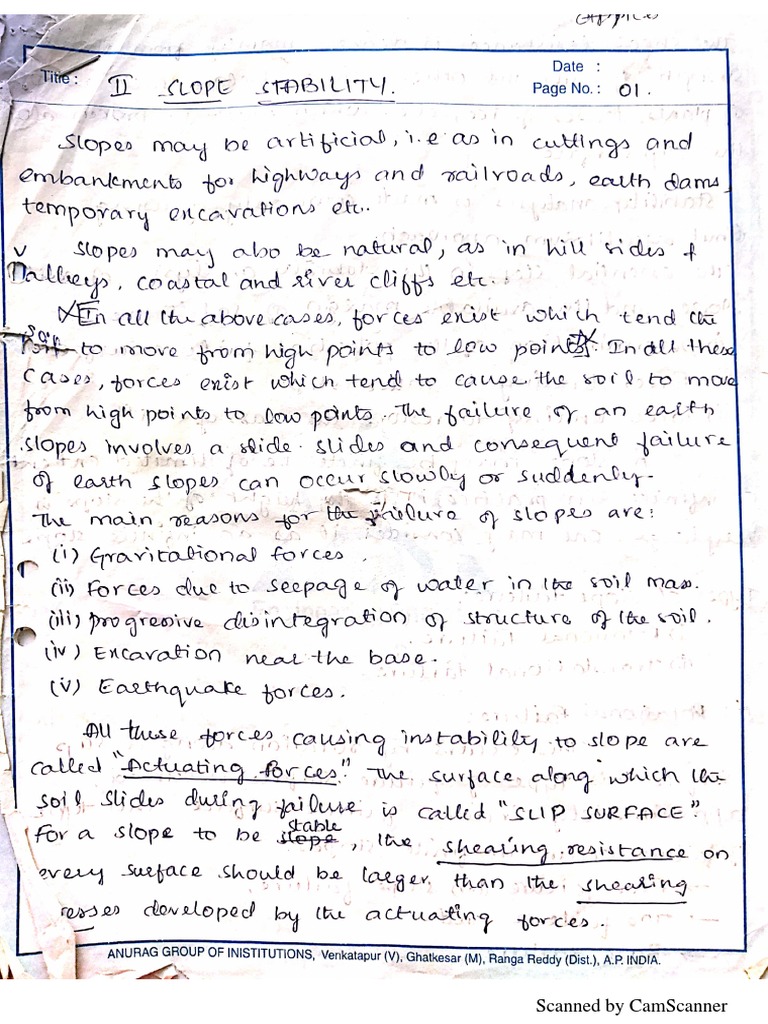 Title : II SLOPE STABILITY.
Date :
Page No. : 01.
Slopes may be artificial, i.e as in cuttings and
embankments for highways and railroads, earth dams,
temporary excavations etc.
Slopes may also be natural, as in hill sides &
Valleys, coastal and river cliffs etc.
In all the above cases, forces exist which tend the
soil to move from high points to low points. In all these
cases, forces exist which tend to cause the soil to move
from high points to low points. The failure of an earth
slopes involves a slide. slides and consequent failure
of earth slopes can occur slowly or suddenly.
The main reasons for the failure of slopes are:
(i) Gravitational forces.
(ii) Forces due to seepage of water in the soil mass.
(iii) progressive disintegration of structure of the soil.
(iv) Excavation near the base.
(v) Earthquake forces.
All these forces causing instability to slope are
called "Actuating forces." The surface along which the
soil slides during failure is called "SLIP SURFACE"
for a slope to be slope stable, the shearing resistance on
every surface should be larger than the shearing
resses developed by the actuating forces.
ANURAG GROUP OF INISTITUTIONS, Venkatapur (V), Ghatkesar (M), Ranga Reddy (Dist.), A.P. INDIA.
Scanned by CamScanner